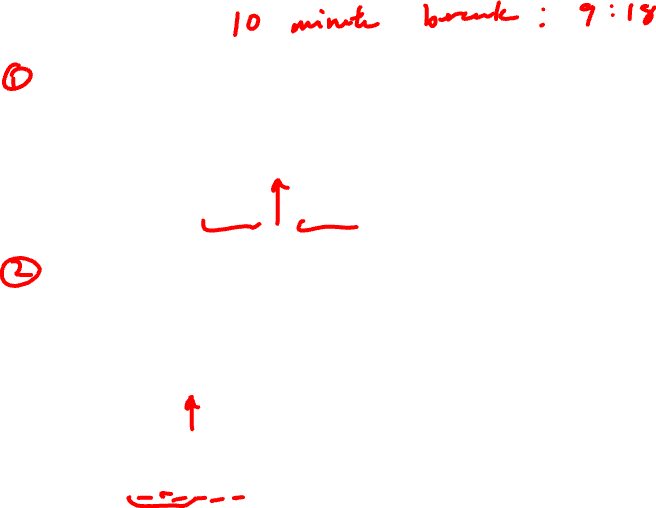 10 minute break : 9:18
①
②